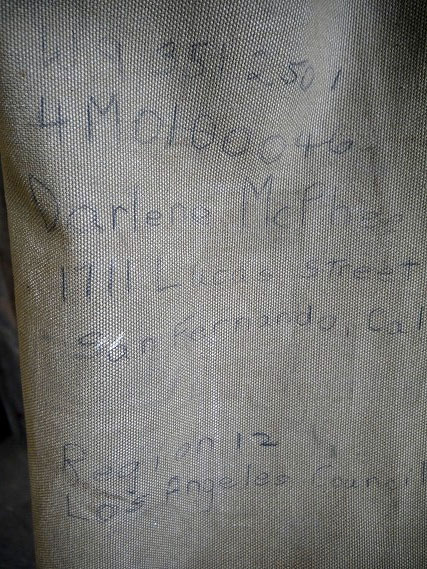 419 351 2501
4M0100046
Darlene McPhee
1711 Lucas Street
San Fernando, Cal
Region 12
Los Angeles Council